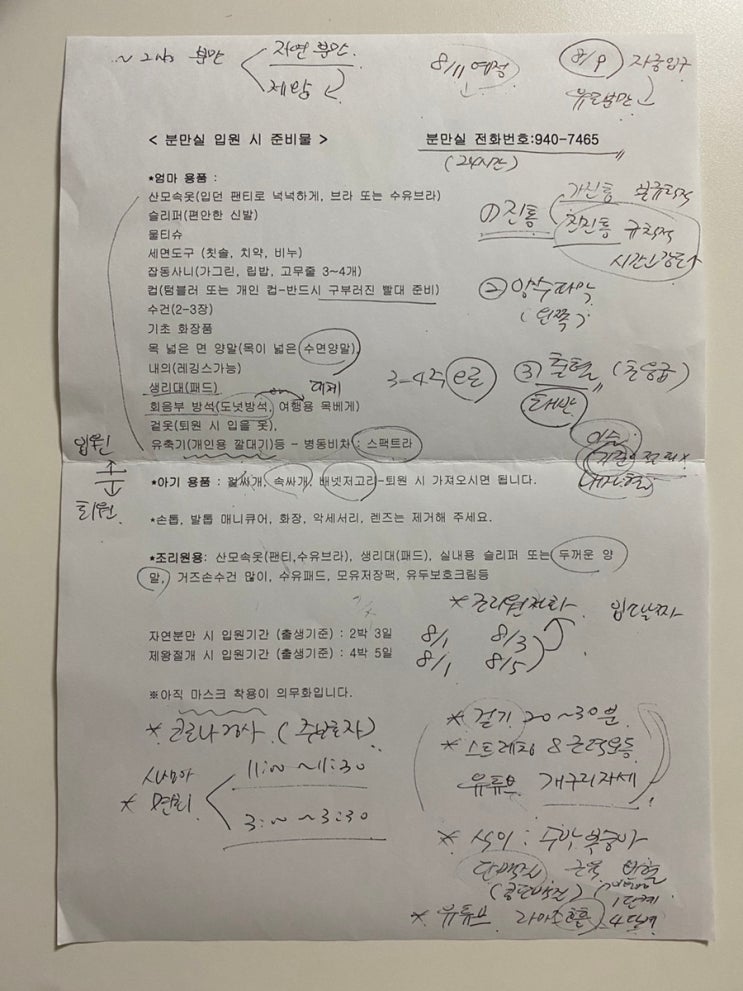 분만 자연분만
제왕
8/11 예정
8/9 자궁입구
유도분만
< 분만실 입원 시 준비물 >
분만실 전화번호:940-7465
(24시간)
*엄마 용품 :
산모속옷(입던 팬티로 넉넉하게, 브라 또는 수유브라)
슬리퍼(편안한 신발)
물티슈
세면도구 (칫솔, 치약, 비누)
잡동사니(가그린, 립밤, 고무줄 3~4개)
컵(텀블러 또는 개인 컵-반드시 구부러진 빨대 준비)
수건(2-3장)
기초 화장품
목 넓은 면 양말(목이 넓은 수면양말)
내의(레깅스가능)
생리대(패드)
회음부 방석(도넛방석, 여행용 목베게)
대체
겉옷(퇴원 시 입을 옷),
유축기(개인용 깔대기)등 - 병동비차 : 스팩트라
① 진통
가진통 불규칙적
진진통 규칙적
시간, 강도↑
② 양수파막
(왼쪽)
3-4주
③ 출혈 (초응급)
태반
이슬
입원
퇴원
*아기 용품 : 겉싸개, 속싸개, 배넷저고리-퇴원 시 가져오시면 됩니다.
*손톱, 발톱 매니큐어, 화장, 악세서리, 렌즈는 제거해 주세요.
*조리원용: 산모속옷(팬티,수유브라), 생리대(패드), 실내용 슬리퍼 또는 두꺼운 양
말, 거즈손수건 많이, 수유패드, 모유저장팩, 유두보호크림등
* 조리원전화
입소날짜
자연분만 시 입원기간 (출생기준) : 2박 3일 8/1 8/3
제왕절개 시 입원기간 (출생기준) : 4박 5일 8/1 8/5
※아직 마스크 착용이 의무화입니다.
* 코로나검사 (주보호자)
신생아
* 면회
11:00 ~ 11:30
3:00 ~ 3:30
* 걷기 20~30분
* 스트레칭 & 근력운동
유튜브 개구리자세
* 식이 : 수박, 복숭아
단백질 근육 빈혈
(콩단백질)
1단계
* 유튜브 라마즈호흡 4단계